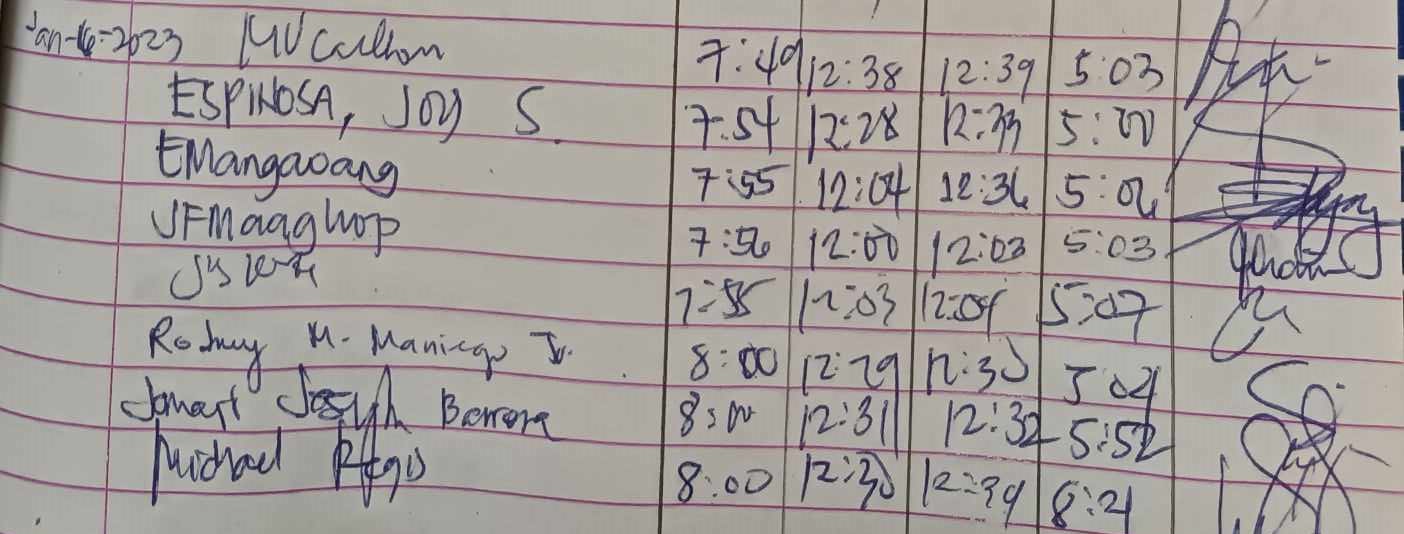 Jan-16-2023 7:49 12:38 12:39 5:03
ESPINOSA, JOY S. 7:54 12:28 12:33 5:00
EMangaoang 7:55 12:04 12:36 5:06
JFMaaghop 7:56 12:00 12:03 5:03
7:55 12:03 12:04 5:07
Rodney M. Maniego Jr. 8:00 12:29 12:30 5:04
Jomart Joseph Barrora 8:00 12:31 12:32 5:52
Michael Regis 8:00 12:30 12:34 8:21